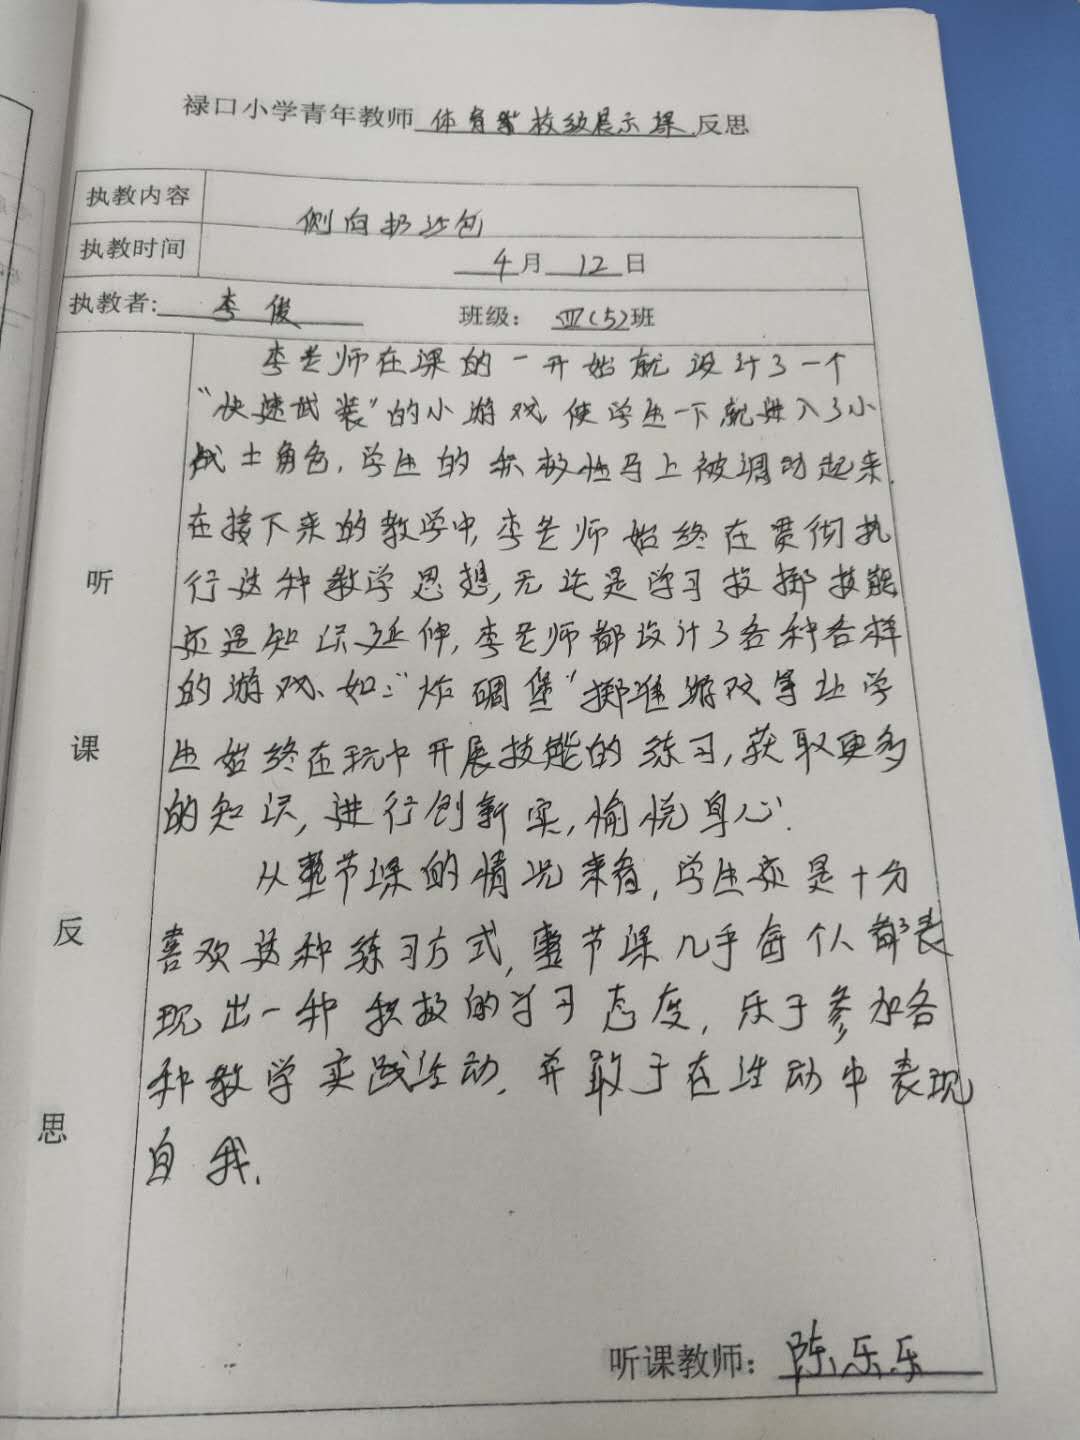 禄口小学青年教师 体育 校级展示课 反思
执教内容 侧向扔沙包
执教时间 4月 12日
执教者: 李俊 班级: 四(5)班
听课反思
李老师在课的一开始就设计了一个
“快速武装”的小游戏,使学生一下就进入了小
战士角色,学生的积极性马上被调动起来.
在接下来的教学中,李老师始终在贯彻执
行这种教学思想,无论是学习投掷技能
还是知识延伸,李老师都设计了各种各样
的游戏、如:“炸碉堡”掷准游戏等让学
生始终在玩中开展技能的练习,获取更多
的知识,进行创新实,愉悦身心.
从整节课的情况来看,学生还是十分
喜欢这种练习方式,整节课几乎每个人都表
现出一种积极的学习态度,乐于参加各
种教学实践活动,并敢于在活动中表现
自我.
听课教师: 陈乐乐